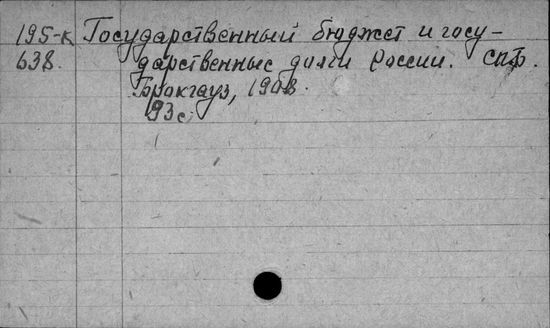 195-к Государственный бюджет и госу-
638. дарственные долги России. СПБ.
Брокгауз, 1908.
93с.